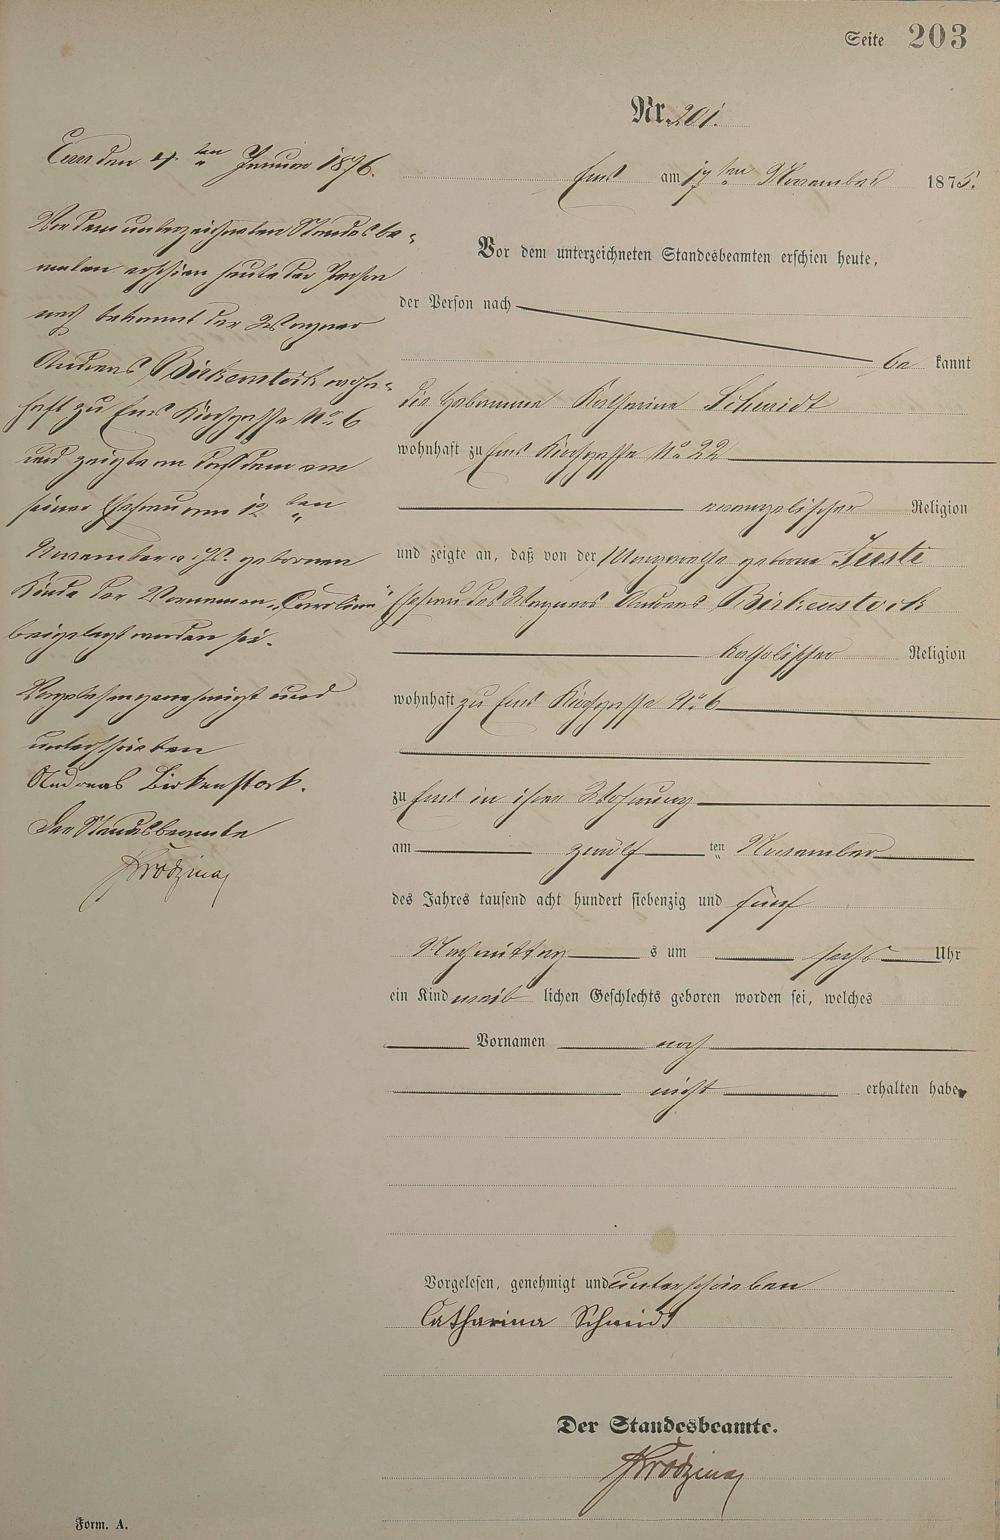 Seite 203
Nr. 201.
Ems am 17ten November 1875.
Vor dem unterzeichneten Standesbeamten erschien heute,
der Person nach
be kannt
die Hebamme Katharina Schmidt
wohnhaft zu Ems Kirchgasse No 22
evangelischer Religion
und zeigte an, daß von der geborne
Ehefrau des Wagners Andreas Birkenstock
katholischer Religion
wohnhaft zu Ems Kirchgasse No 6
zu Ems in ihrer Wohnung
am zwölf ten November
des Jahres tausend acht hundert siebenzig und fünf
Nachmittag s um sechs Uhr
ein Kind weib lichen Geschlechts geboren worden sei, welches
Vornamen noch
nicht erhalten habe
Vorgelesen, genehmigt und unterschrieben
Catharina Schmidt
Der Standesbeamte.
Ems den 4ten Januar 1876.
Vor dem unterzeichneten Standesbe-
amten erschien heute der Person
nach bekannt der Wagner
Andreas Birkenstock wohn-
haft zu Ems Kirchgasse No 6
und zeigte an daß dem von
seiner Ehefrau am 12ten
November v. Js. gebornen
Kinde der Vornamen „Carolina"
beigelegt worden sei.
Vorgelesen genehmigt und
unterschrieben
Andreas Birkenstock.
Der Standesbeamte
Form. A.